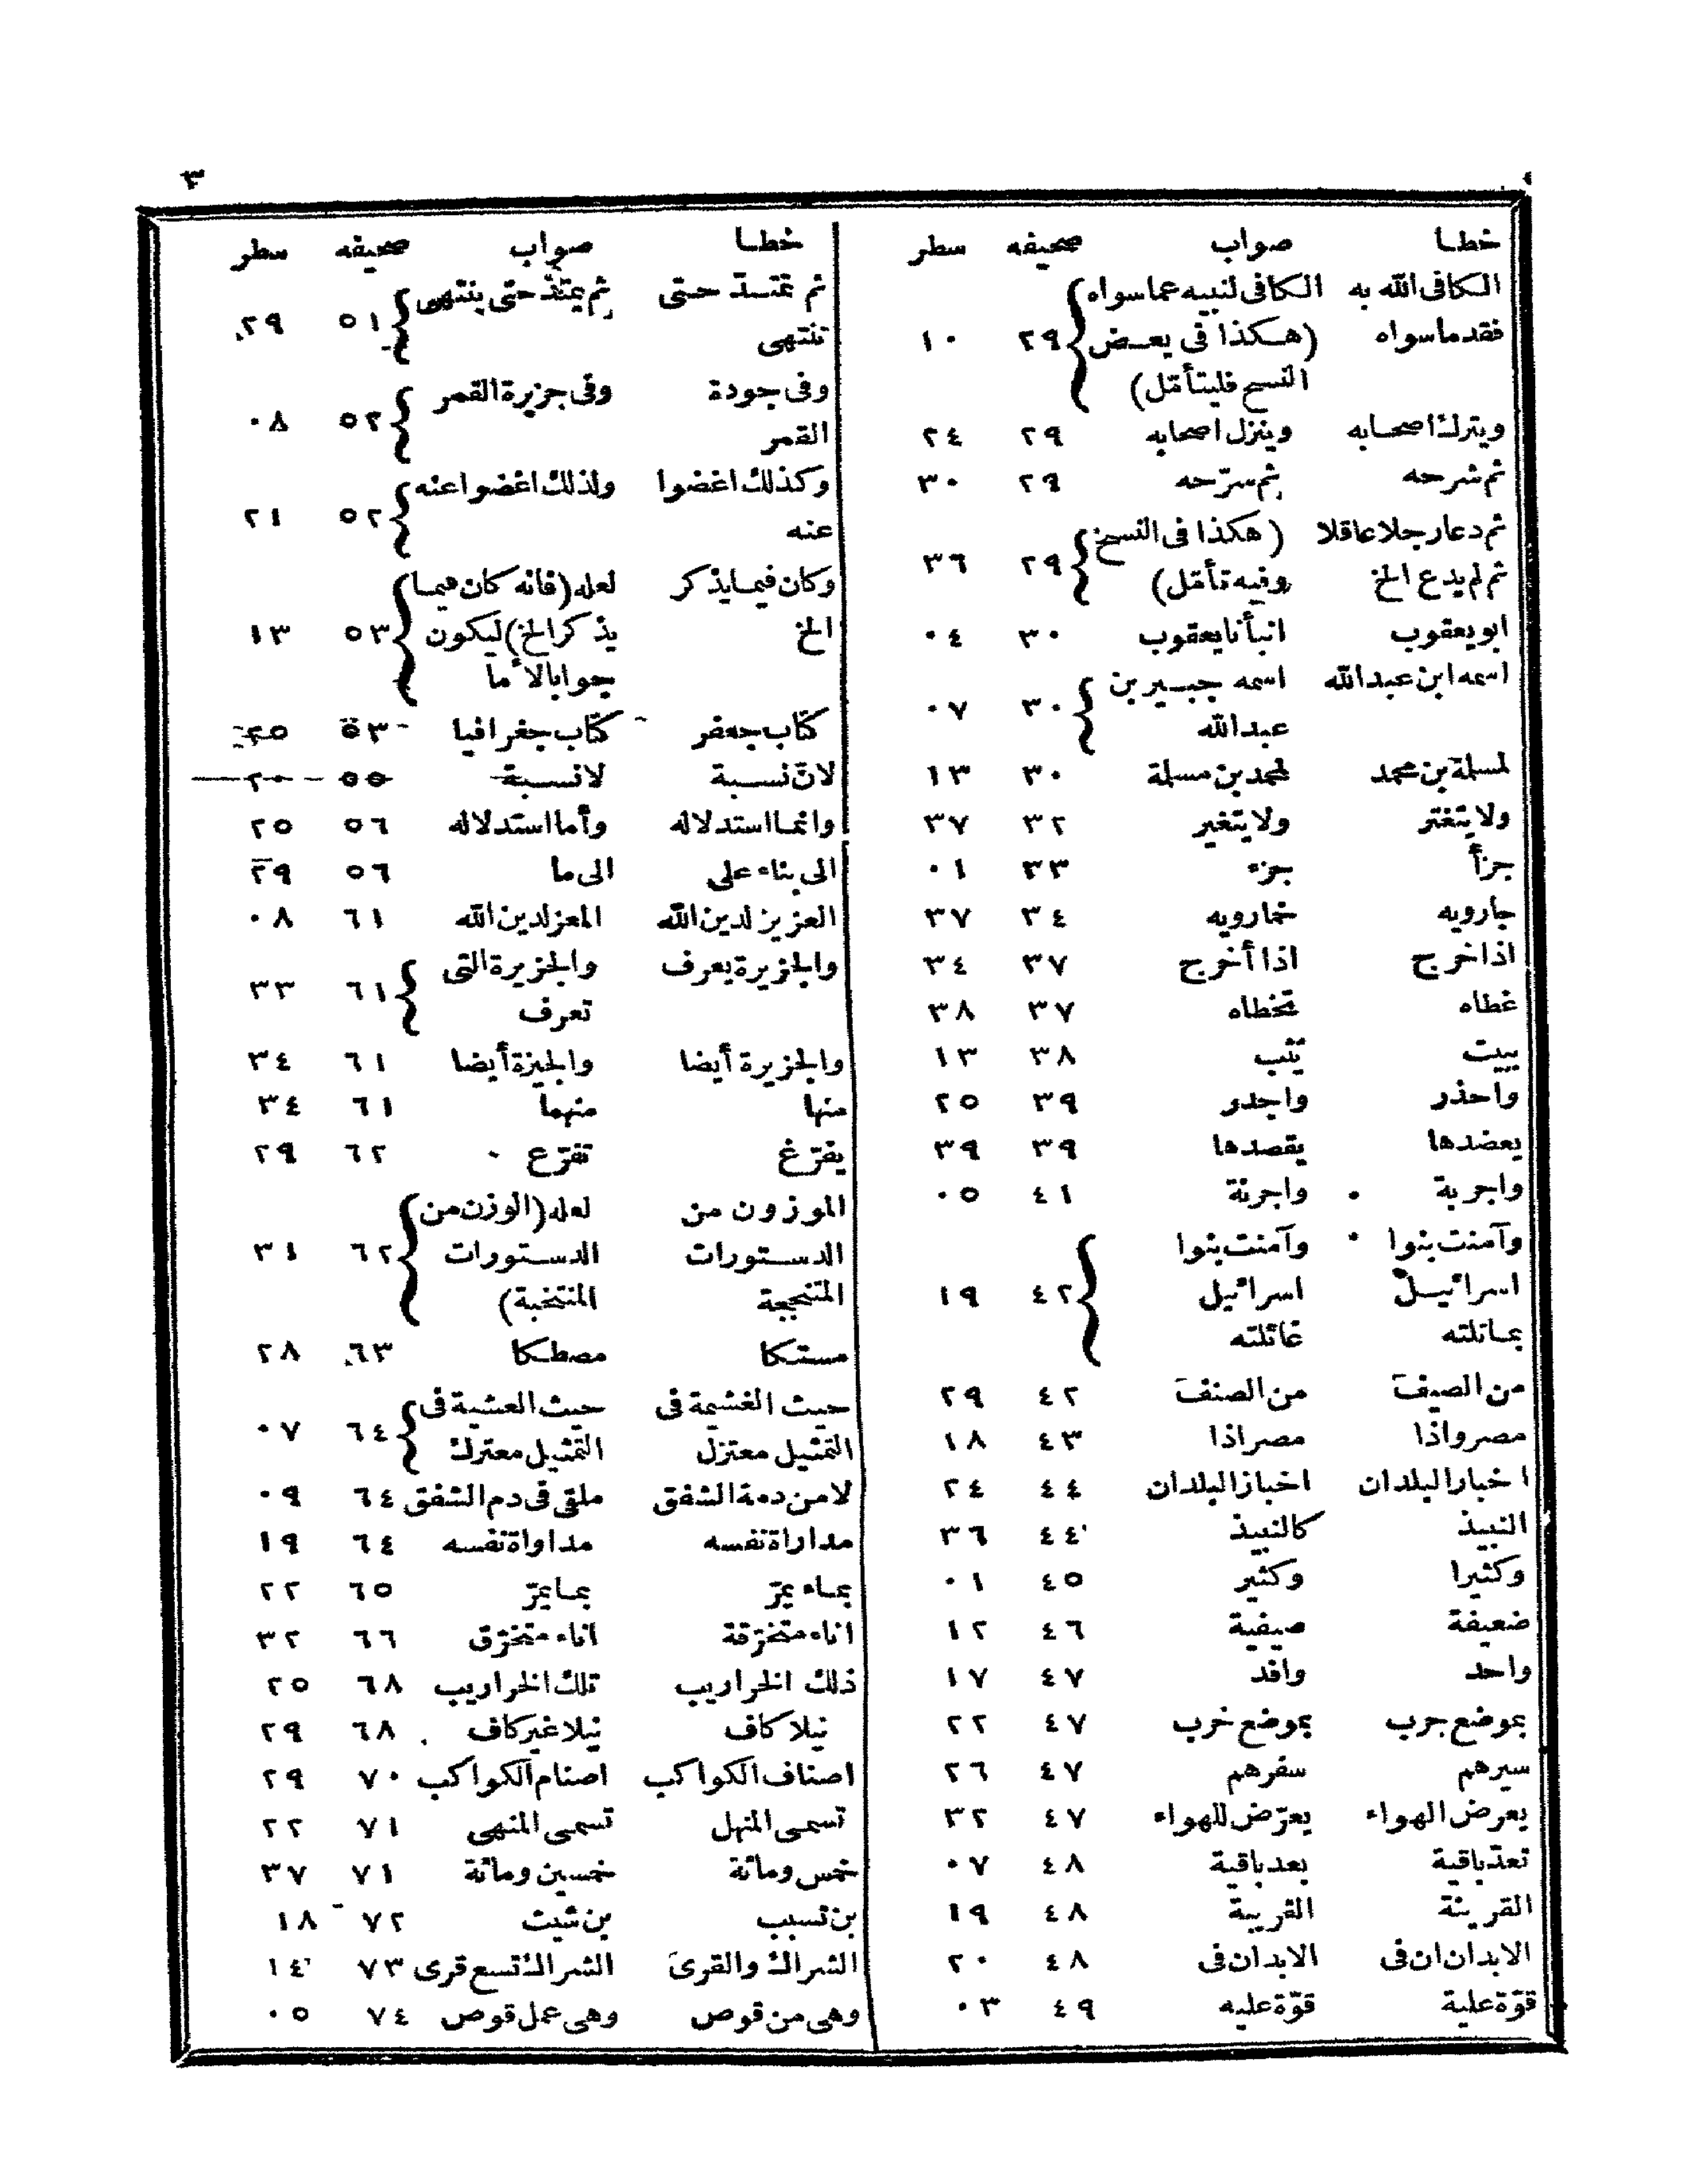 ٣
خطا صواب صحيفه سطر
الكافى الله به الكافى لنبيه عما سواه
فقد ما سواه (هكذا فى بعض ٢٩ ١٠
النسخ فليتأمّل)
ويترك اصحابه وينزل اصحابه ٢٩ ٢٤
ثم شرحه ثم سرّحه ٢٩ ٣٠
ثم دعا رجلا عاقلا (هكذا فى النسخ
ثم لم يدع الخ وفيه تأمّل) ٢٩ ٣٦
ابو يعقوب انبأنا يعقوب ٣٠ ٠٤
اسمه ابن عبد الله اسمه جبير بن
عبد الله ٣٠ ٠٧
لمسلمة بن محمد لمحمد بن مسلمة ٣٠ ١٣
ولا يتغتر ولا يتغير ٣٢ ٣٧
جزأ جزء ٣٣ ٠١
جارويه خمارويه ٣٤ ٣٧
اذا خرج اذا أخرج ٣٧ ٣٤
غطاه تخطاه ٣٧ ٣٨
يبيت يثب ٣٨ ١٣
واحذر واجدر ٣٩ ٢٥
يعضدها يقصدها ٣٩ ٣٩
واجرية واجرنة ٤١ ٠٥
وآمنت بنوا وآمنت بنوا
اسرائيل اسرائيل ٤٢ ١٩
بماتلته غائلته
من الصيف من الصنف ٤٢ ٢٩
مصر واذا مصر اذا ٤٣ ١٨
اخبار البلدان اخباز البلدان ٤٤ ٢٤
النبيذ كالنبيذ ٤٤ ٣٦
وكثيرا وكثير ٤٥ ٠١
ضعيفة صيفية ٤٦ ١٢
واحد وافد ٤٧ ١٧
بموضع جرب بموضع خرب ٤٧ ٢٢
سيرهم سفرهم ٤٧ ٢٦
يعرض الهواء يعرّض للهواء ٤٧ ٣٢
تعدّ باقية بعد باقية ٤٨ ٠٧
القرينة القريبة ٤٨ ١٩
الابدان ان فى الابدان فى ٤٨ ٢٠
قوّة علية قوّة عليه ٤٩ ٠٣
خطا صواب صحيفه سطر
ثم تمتدّ حتى ثم يمتدّ حتى ينتهى
تنتهى ٥١ ٢٩
وفى جودة وفى جزيرة القمر
القمر ٥٢ ٠٨
وكذلك اغضوا ولذلك اغضوا عنه
عنه ٥٢ ٢١
وكان فيما يذكر لعله (فانه كان فيما
الخ يذكر الخ) ليكون ٥٣ ١٣
جوابا لأما
كتاب جعفر كتاب جغرافيا ٥٣ ٢٥
لان نسبة لانسبة ٥٥ ٢٠
وانما استدلاله وأما استدلاله ٥٦ ٢٥
الى بناء على الى ما ٥٦ ٢٩
العزيز لدين الله المعز لدين الله ٦١ ٠٨
والجزيرة يعرف والجزيرة التى
تعرف ٦١ ٣٣
والجزيرة أيضا والجيزة أيضا ٦١ ٣٤
منها منهما ٦١ ٣٤
يفرّغ تفرّع ٦٢ ٢٩
الموزون من لعله (الوزن من
الدستورات الدستورات ٦٢ ٣١
المتنججة المنتخبة)
مستكا مصطكا ٦٣ ٢٨
حيث الغشيمة فى حيث العشية فى
التمثيل معتزل التمثيل معترك ٦٤ ٠٧
لا من دمة الشفق ملقى فى دم الشفق ٦٤ ٠٩
مداراة نفسه مداواة نفسه ٦٤ ١٩
بماء يمرّ بما يمرّ ٦٥ ٢٢
اناء متخرّقة اناء متخرّق ٦٦ ٣٢
ذلك الخراريب تلك الخراريب ٦٨ ٢٥
نيلا كاف نيلا غير كاف ٦٨ ٢٩
اصناف الكواكب اصنام الكواكب ٧٠ ٢٩
تسمى المنهل تسمى المنهى ٧١ ٢٢
خمس ومائة خمسين ومائة ٧١ ٣٧
بن تسبب بن شيث ٧٢ ١٨
الشراك والقرى الشراك تسع قرى ٧٣ ١٤
وهى من قوص وهى عمل قوص ٧٤ ٠٥